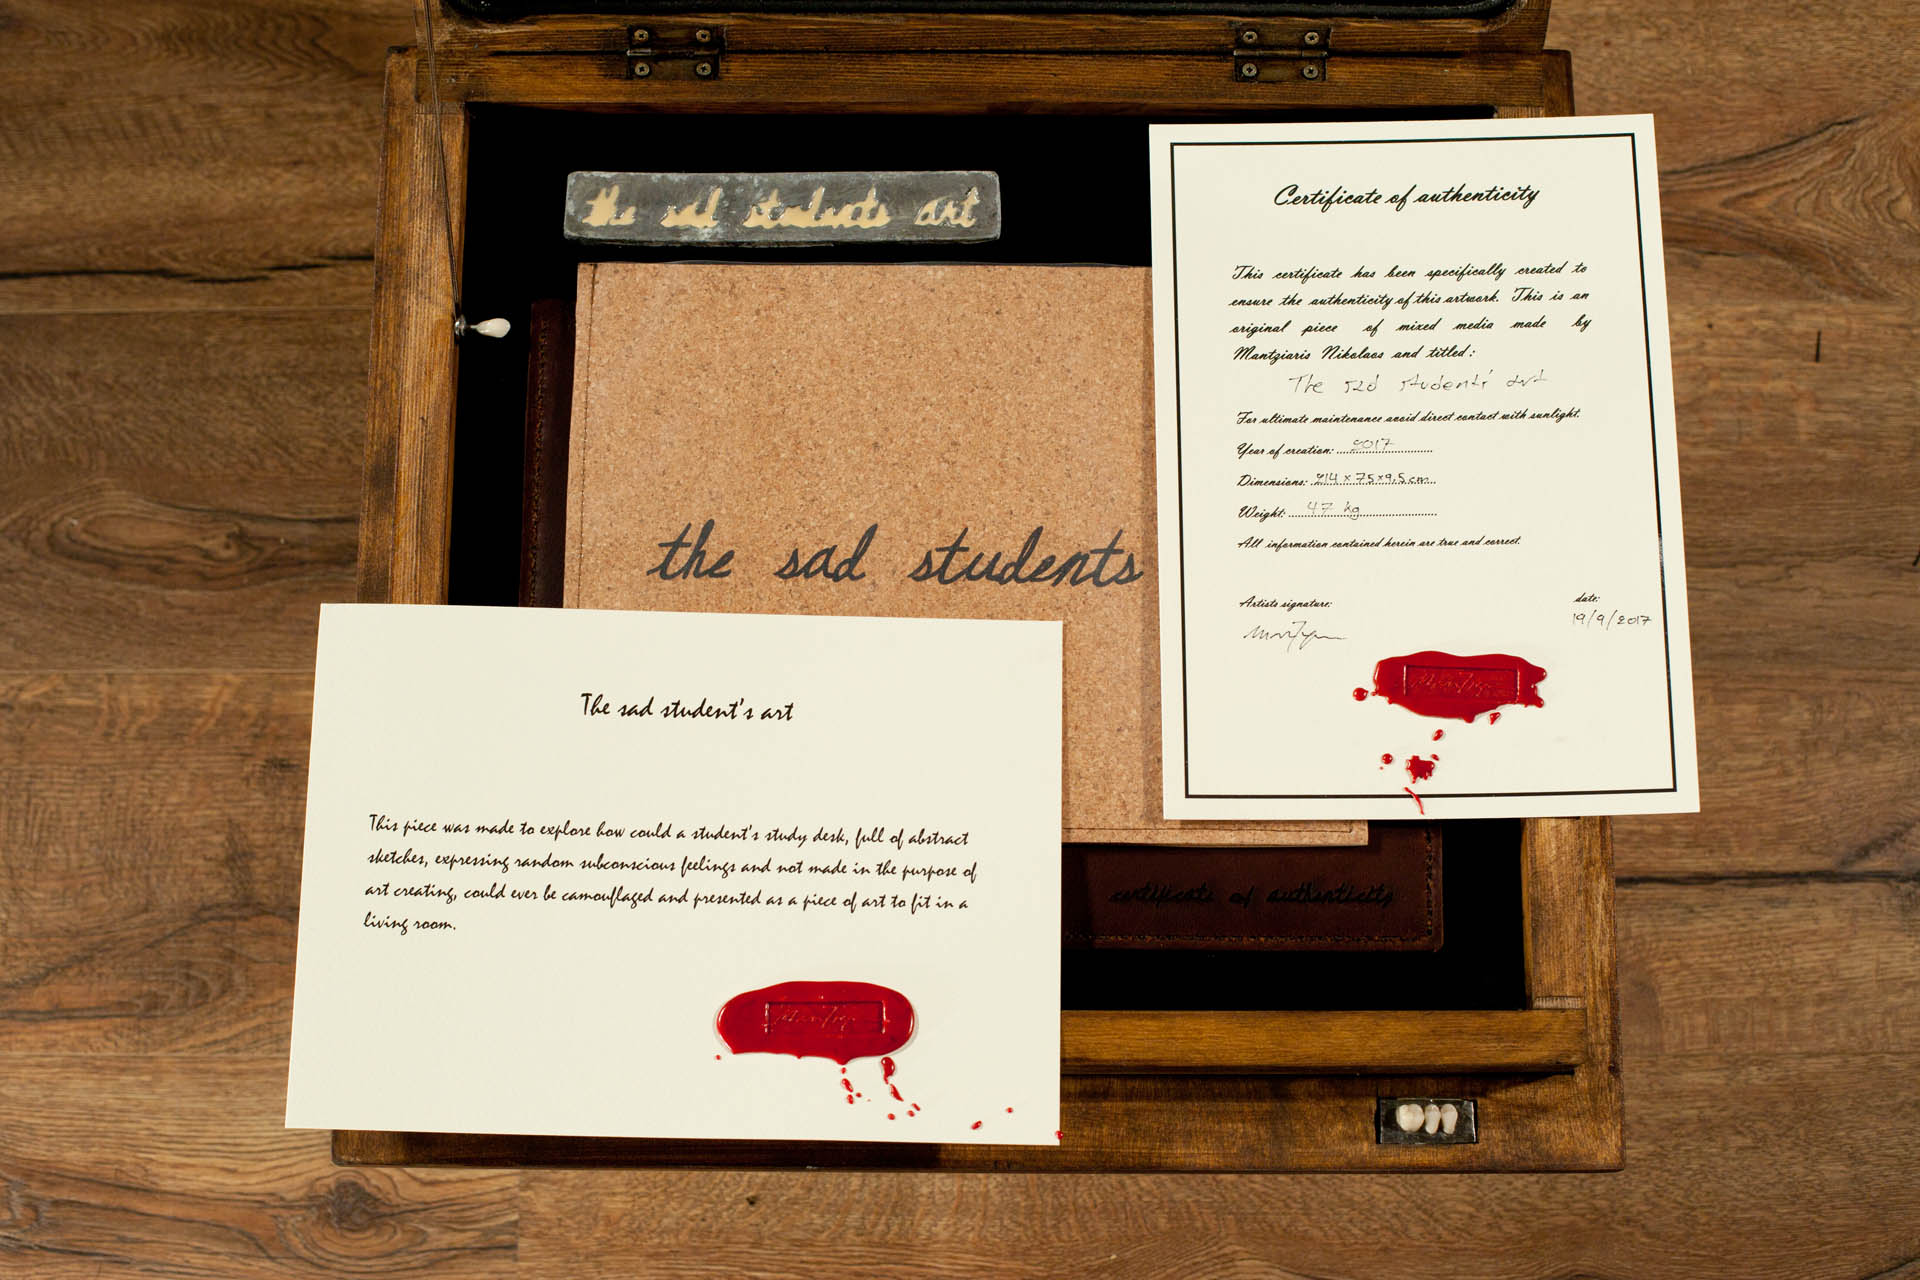 the sad students art
the sad students
Certificate of authenticity
This certificate has been specifically created to
ensure the authenticity of this artwork. This is an
original piece of mixed media made by
Mantziaris Nikolaos and titled:
The sad students' art
For ultimate maintenance avoid direct contact with sunlight.
Year of creation: 2017
Dimensions: 214 x 75x9,5cm
Weight: 47 kg
All information contained herein are true and correct.
Artists signature:
date:
19/9/2017
The sad student's art
This piece was made to explore how could a student's study desk, full of abstract
sketches, expressing random subconscious feelings and not made in the purpose of
art creating, could ever be camouflaged and presented as a piece of art to fit in a
living room.
certificate of authenticity